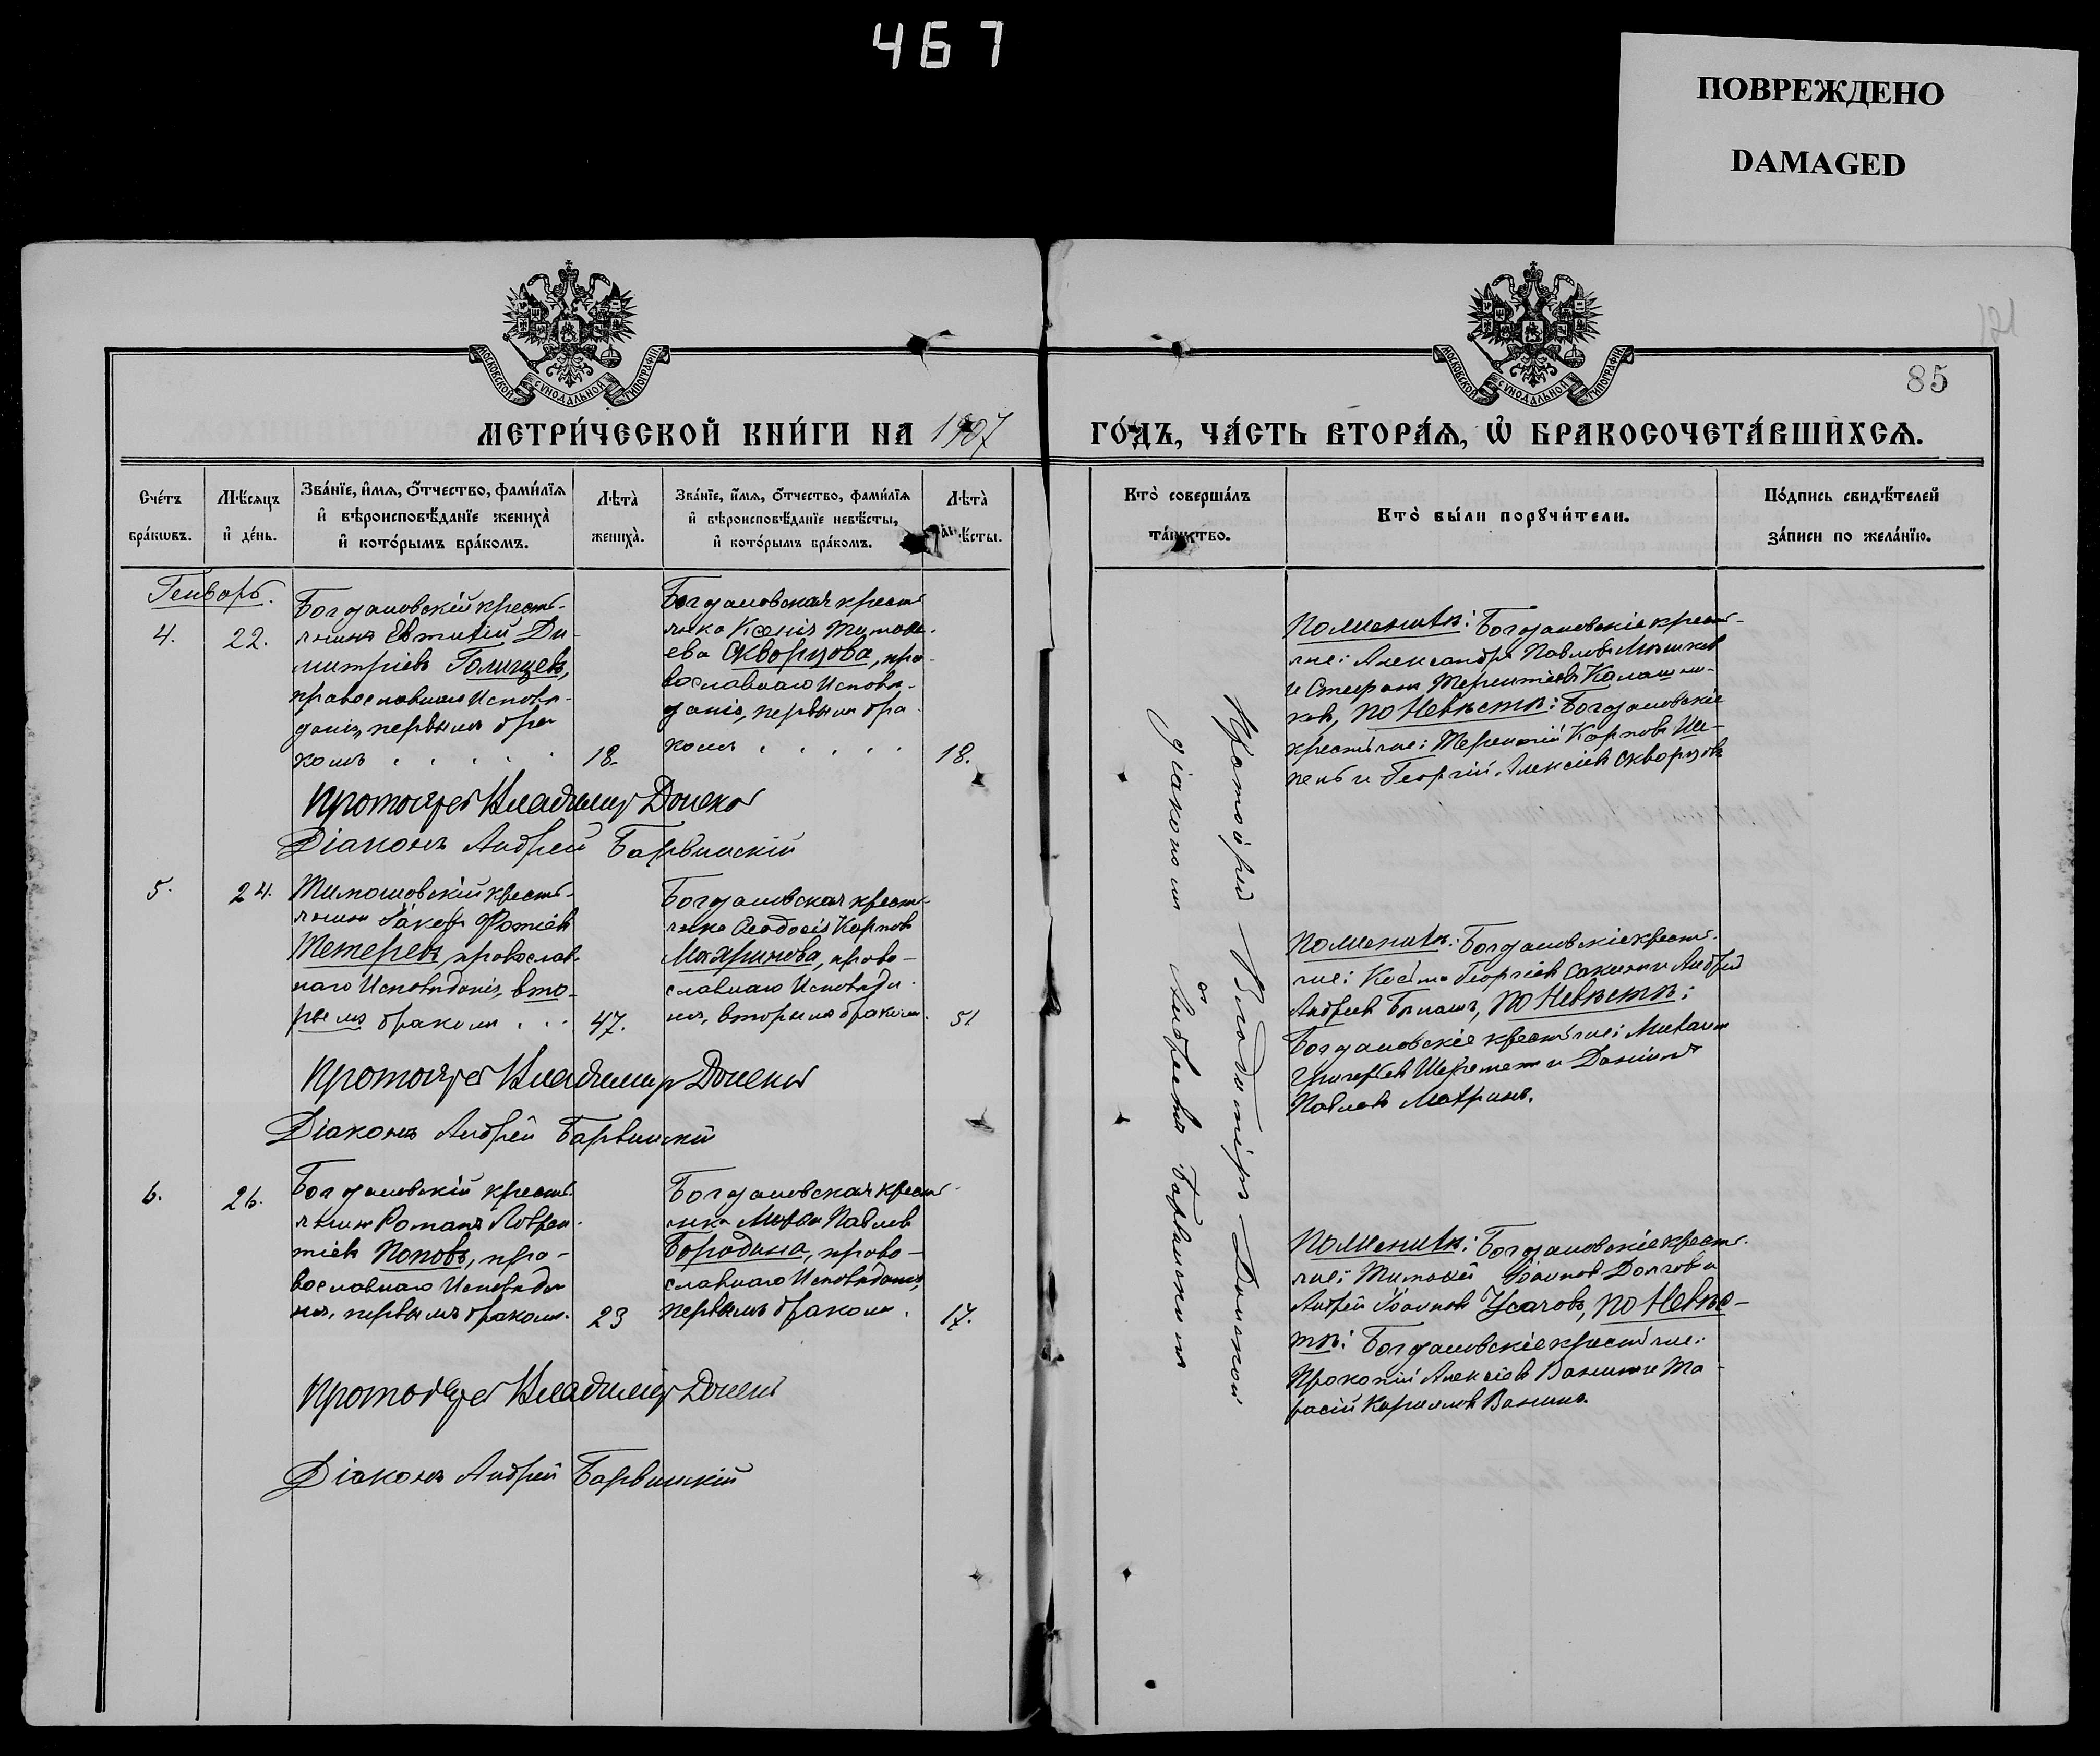 467
ПОВРЕЖДЕНО
DAMAGED
МОСКОВСКОЙ СѴНОДАЛЬНОЙ ТИПОГРАФІИ
МЕТРИ́ЧЕСКОЙ КНИ́ГИ НА 1907
Сче́тъ
бра́кωвъ.
Мѣ́сяцъ
и҆ де́нь.
Зва́нїе, и҆́мѧ, ѻ҆́тчество, фами́лїѧ
и҆ вѣроисповѣ́данїе жениха̀
и҆ кото́рымъ бра́комъ.
Лѣта̀
жениха̀.
Зва́нїе, и҆́мѧ, ѻ҆́тчество, фами́лїѧ
и҆ вѣроисповѣ́данїе невѣ́сты,
и҆ кото́рымъ бра́комъ.
Лѣта̀
ѣ́сты.
Генварь.
4.
22.
Богдановскій кресть-
янинъ Евтихій Ди-
митріевъ Голищевъ,
православнаго Исповѣ-
данія, первымъ бра
комъ . . . . .
18.
Богдановская кресть
янка Ксенія Тимофе-
ева Скворцова, пра-
вославнаго Исповѣ-
данія, первымъ бра
комъ . . . . .
18.
Протоіерей Владимиръ Донской
Діаконъ Андрей Барвинскій
5.
24.
Тимошовскій кресть-
янинъ Іаковъ Фотіевъ
Тетеревъ, православ-
наго Исповѣданія, вто-
рымъ бракомъ . . .
47.
Богдановская кресть-
янка Ѳеодосія Карпова
Махринова, право-
славнаго Исповѣда-
нія, вторымъ бракомъ.
51
Протоіерей Владимиръ Донской
Діаконъ Андрей Барвинскій
6.
26.
Богдановскій кресть
янинъ Романъ Лаврен-
тіевъ Поповъ, пра-
вославнаго Исповѣда
нія, первымъ бракомъ.
23
Богдановская кресть-
янка Марѳа Павлова
Бородина, право-
славнаго Исповѣданія,
первымъ бракомъ.
17.
Протоіерей Владиміръ Донской
Діаконъ Андрей Барвинскій
МОСКОВСКОЙ СѴНОДАЛЬНОЙ ТИПОГРАФІИ
121
85
ГО́ДЪ, ЧА́СТЬ ВТОРА́Ѧ, Ѽ БРАКОСОЧЕТА́ВШИХСѦ.
Кто̀ соверша́лъ
та́инство.
Кто̀ бы́ли порꙋчи́тели.
По́дпись свидѣ́телей
за́писи по жела́нїю.
Протоіерей Владиміръ Донской
съ діакономъ Андреемъ Барвинскимъ
По Женихѣ: Богдановскіе кресть-
яне: Александръ Павловъ Мѣшковъ
и Стефанъ Терентіевъ Калашни-
ковъ, по Невѣстѣ: Богдановскіе
крестьяне: Терентій Карповъ Ше-
пель и Георгій Алексіевъ Скворцовъ
По Женихѣ: Богдановскіе кресть-
яне: Косьма Георгіевъ Сакинъ и Андрей
Андреевъ, по Невѣстѣ:
Богдановскіе крестьяне: Михаилъ
Григорьевъ Шереметъ и Даніилъ
Павловъ Махринъ.
По Женихѣ: Богдановскіе кресть-
яне: Тимоѳей Іоанновъ Долговъ и
Андрей Іоанновъ Усачовъ, по Невѣс-
тѣ: Богдановскіе крестьяне:
Прокопій Алексіевъ Ванинъ и Та-
расій Кирилловъ Ванинъ.